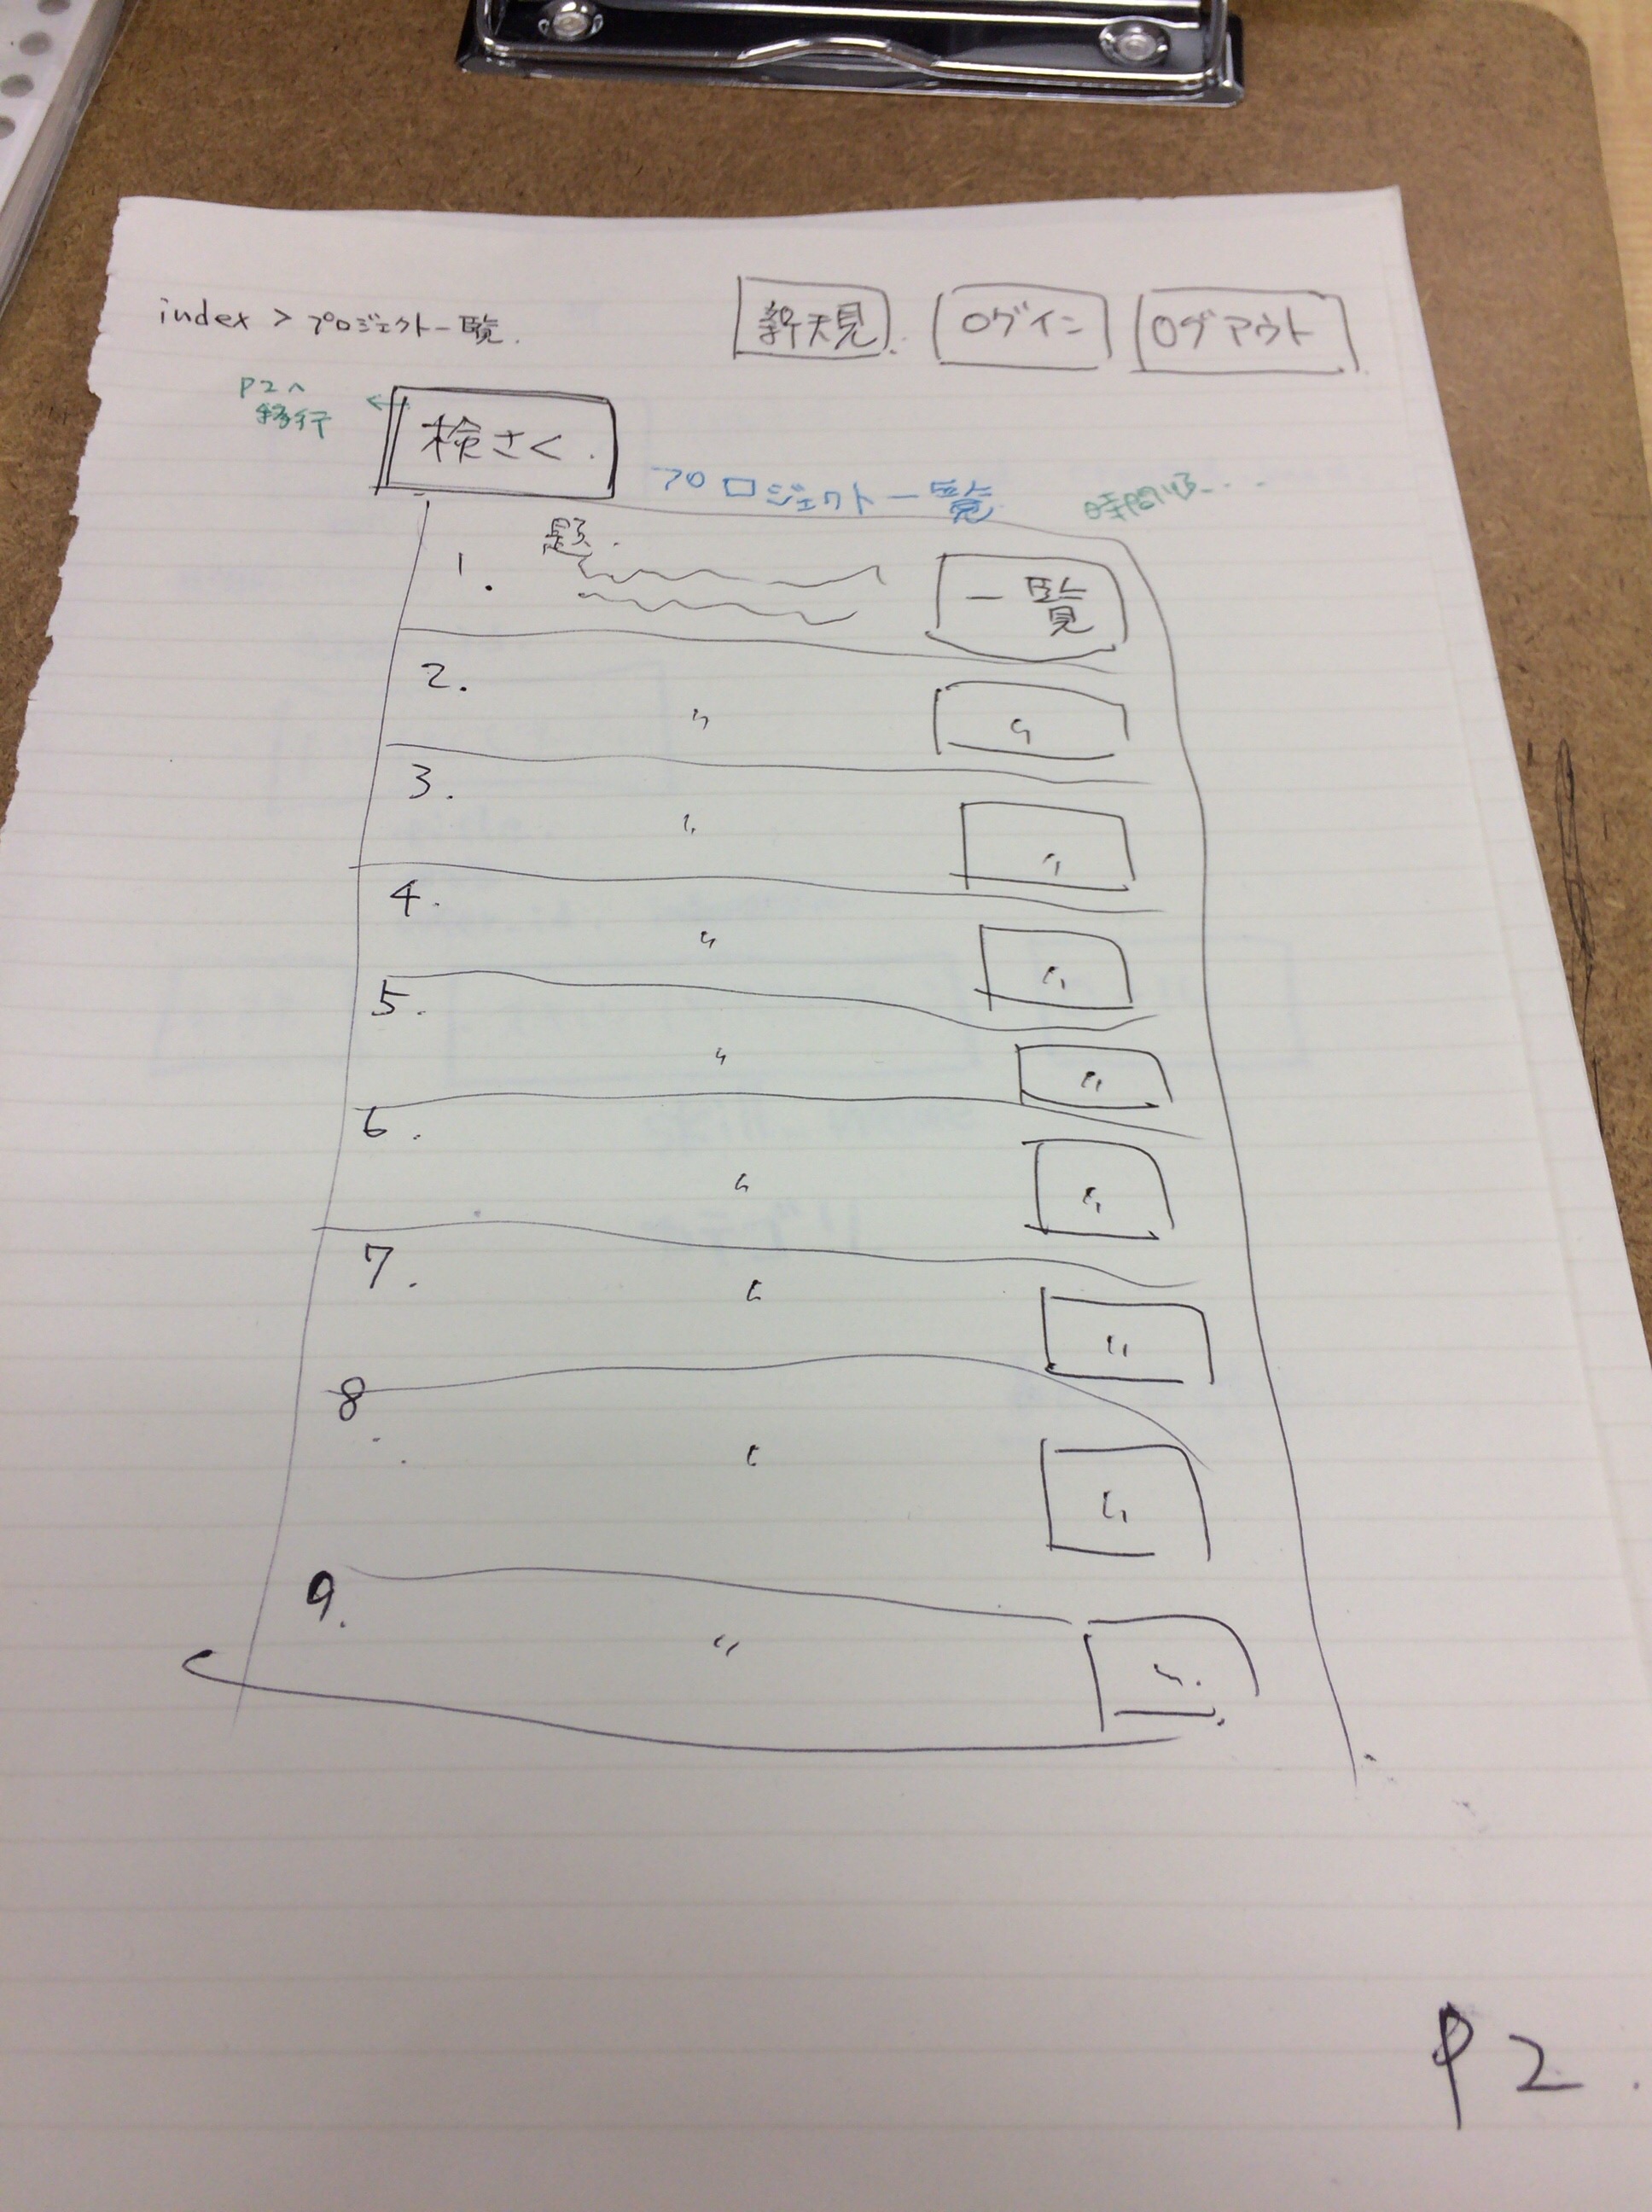 index > プロジェクト一覧.
新規. ログイン ログアウト
P2へ
移行
検さく.
プロジェクト一覧
題.
1. 一覧
2. 〃 〃
3. 〃 〃
4. 〃 〃
5. 〃 〃
6. 〃 〃
7. 〃 〃
8. 〃 〃
9. 〃 〃
P2.